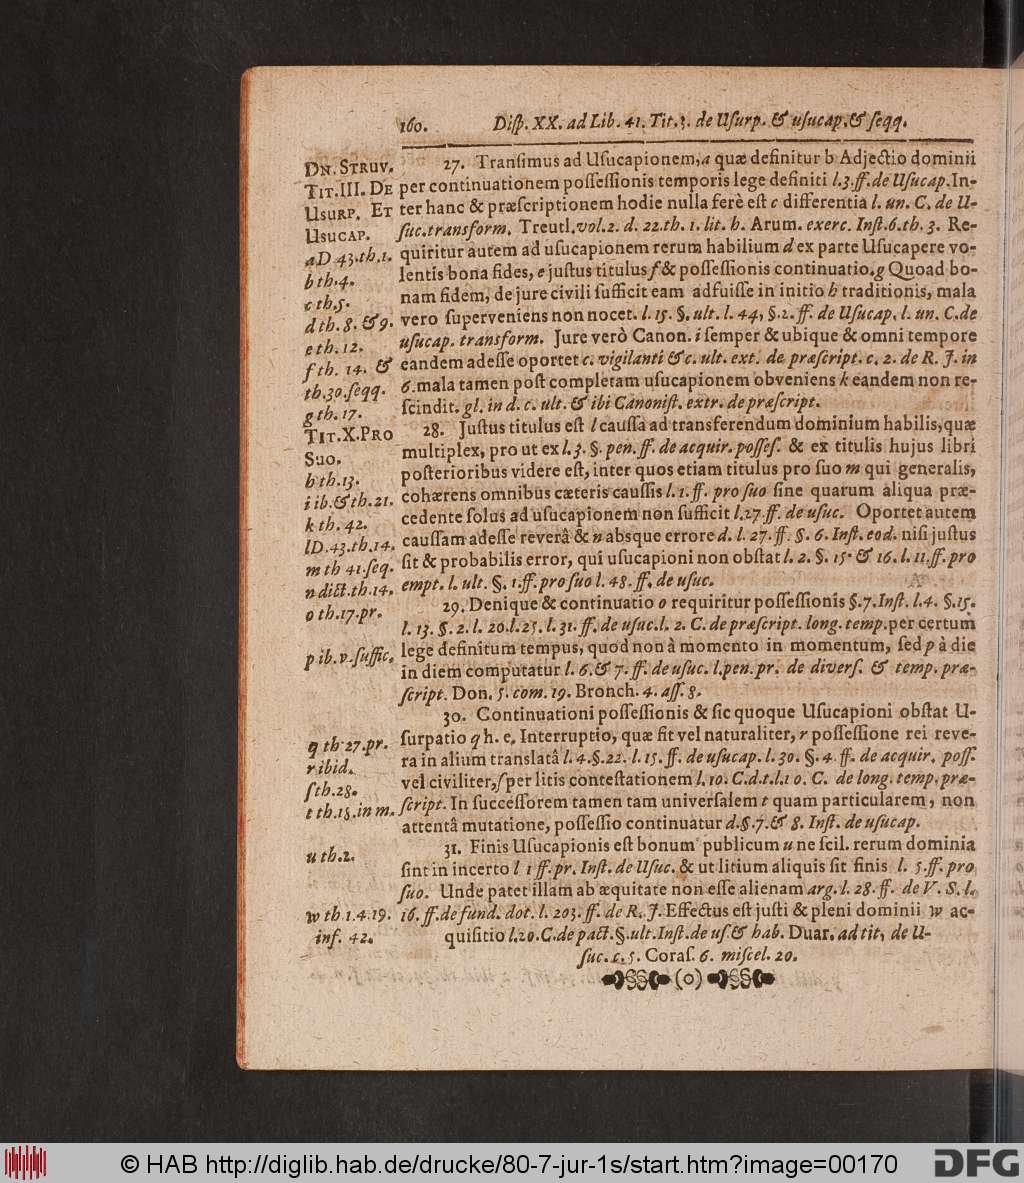 160. Disp. XX. ad Lib. 41. Tit. 3. de Usurp. & usucap. & seqq.
DN. STRUV.
TIT. III. DE
USURP. ET
USUCAP.
a D. 43. th. 1.
b th. 4.
c th. 5.
d th. 8. & 9.
e th. 12.
f th. 14. &
th. 30. seqq.
g th. 17.
TIT. X. PRO
SUO.
h th. 13.
i ib. & th. 21.
k th. 42.
l D. 43. th. 14.
m th 41. seq.
n dict. th. 14.
o th. 17. pr.
p ib. v. suffic.
q th 27. pr.
r ibid.
s th. 28.
t th. 18. in m.
u th. 2.
w th 1. 4. 19.
inf. 42.
27. Transimus ad Usucapionem, a quæ definitur b Adjectio dominii
per continuationem possessionis temporis lege definiti l. 3. ff. de Usucap. In-
ter hanc & præscriptionem hodie nulla ferè est c differentia l. un. C. de U-
suc. transform. Treutl. vol. 2. d. 22. th. 1. lit. h. Arum. exerc. Inst. 6. th. 3. Re-
quiritur autem ad usucapionem rerum habilium d ex parte Usucapere vo-
lentis bona fides, e justus titulus f & possessionis continuatio. g Quoad bo-
nam fidem, de jure civili sufficit eam adfuisse in initio h traditionis, mala
vero superveniens non nocet. l. 15. §. ult. l. 44, §. 2. ff. de Usucap. l. un. C. de
usucap. transform. Jure verò Canon. i semper & ubique & omni tempore
eandem adesse oportet c. vigilanti & c. ult. ext. de præscript. c. 2. de R. J. in
6. mala tamen post completam usucapionem obveniens k eandem non re-
scindit. gl. in d. c. ult. & ibi Canonist. extr. de præscript.
28. Justus titulus est l caussa ad transferendum dominium habilis, quæ
multiplex, pro ut ex l. 3. §. pen. ff. de acquir. posses. & ex titulis hujus libri
posterioribus videre est, inter quos etiam titulus pro suo m qui generalis,
cohærens omnibus cæteris caussis l. 1. ff. pro suo sine quarum aliqua præ-
cedente solus ad usucapionem non sufficit l. 27. ff. de usuc. Oportet autem
caussam adesse reverâ & n absque errore d. l. 27. ff. §. 6. Inst. eod. nisi justus
sit & probabilis error, qui usucapioni non obstat l. 2. §. 15. & 16. l. 11. ff. pro
empt. l. ult. §. 1. ff. pro suo l. 48. ff. de usuc.
29. Denique & continuatio o requiritur possessionis §. 7. Inst. l. 4. §. 15.
l. 13. §. 2. l. 20. l. 25. l. 31. ff. de usuc. l. 2. C. de præscript. long. temp. per certum
lege definitum tempus, quod non à momento in momentum, sed p à die
in diem computatur l. 6. & 7. ff. de usuc. l. pen. pr. de divers. & temp. præ-
script. Don. 5. com. 19. Bronch. 4. ass. 8.
30. Continuationi possessionis & sic quoque Usucapioni obstat U-
surpatio q h. e. Interruptio, quæ fit vel naturaliter, r possessione rei reve-
ra in alium translatâ l. 4. §. 22. l. 15. ff. de usucap. l. 30. §. 4. ff. de acquir. poss.
vel civiliter, s per litis contestationem l. 10. C. d. t. l. 10. C. de long. temp. præ-
script. In successorem tamen tam universalem t quam particularem, non
attentâ mutatione, possessio continuatur d. §. 7. & 8. Inst. de usucap.
31. Finis Usucapionis est bonum publicum u ne scil. rerum dominia
sint in incerto l 1 ff. pr. Inst. de Usuc. & ut litium aliquis sit finis l. 5. ff. pro
suo. Unde patet illam ab æquitate non esse alienam arg. l. 28. ff. de V. S. l.
16. ff. de fund. dot. l. 203. ff. de R. J. Effectus est justi & pleni dominii w ac-
quisitio l. 20. C. de pact. §. ult. Inst. de us. & hab. Duar. ad tit. de U-
suc. c. 5. Coras. 6. miscel. 20.
(o)
© HAB http://diglib.hab.de/drucke/80-7-jur-1s/start.htm?image=00170
DFG